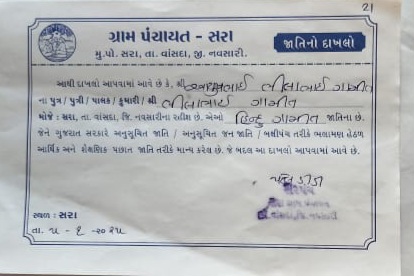 21
ગ્રામ પંચાયત - સરા
મુ.પો. સરા, તા. વાંસદા, જી. નવસારી.
જાતિનો દાખલો
આથી દાખલો આપવામાં આવે છે કે, શ્રી લીલાભાઈ ગામીત
ના પુત્ર / પુત્રી / પાલક / કુમારી / શ્રી લીલાભાઈ ગામીત
મોજે : સરા, તા. વાંસદા, જિ. નવસારીના રહીશ છે. એઓ હિન્દુ ગામીત જાતિના છે.
જેને ગુજરાત સરકારે અનુસૂચિત જાતિ / અનુસૂચિત જન જાતિ / બક્ષીપંચ તરીકે ભલામણ હેઠળ
આર્થિક અને શૈક્ષણિક પછાત જાતિ તરીકે માન્ય કરેલ છે. જે બદલ આ દાખલો આપવામાં આવે છે.
સ્થળ : સરા
તા. ૫ - ૬ - ૨૦૨૫